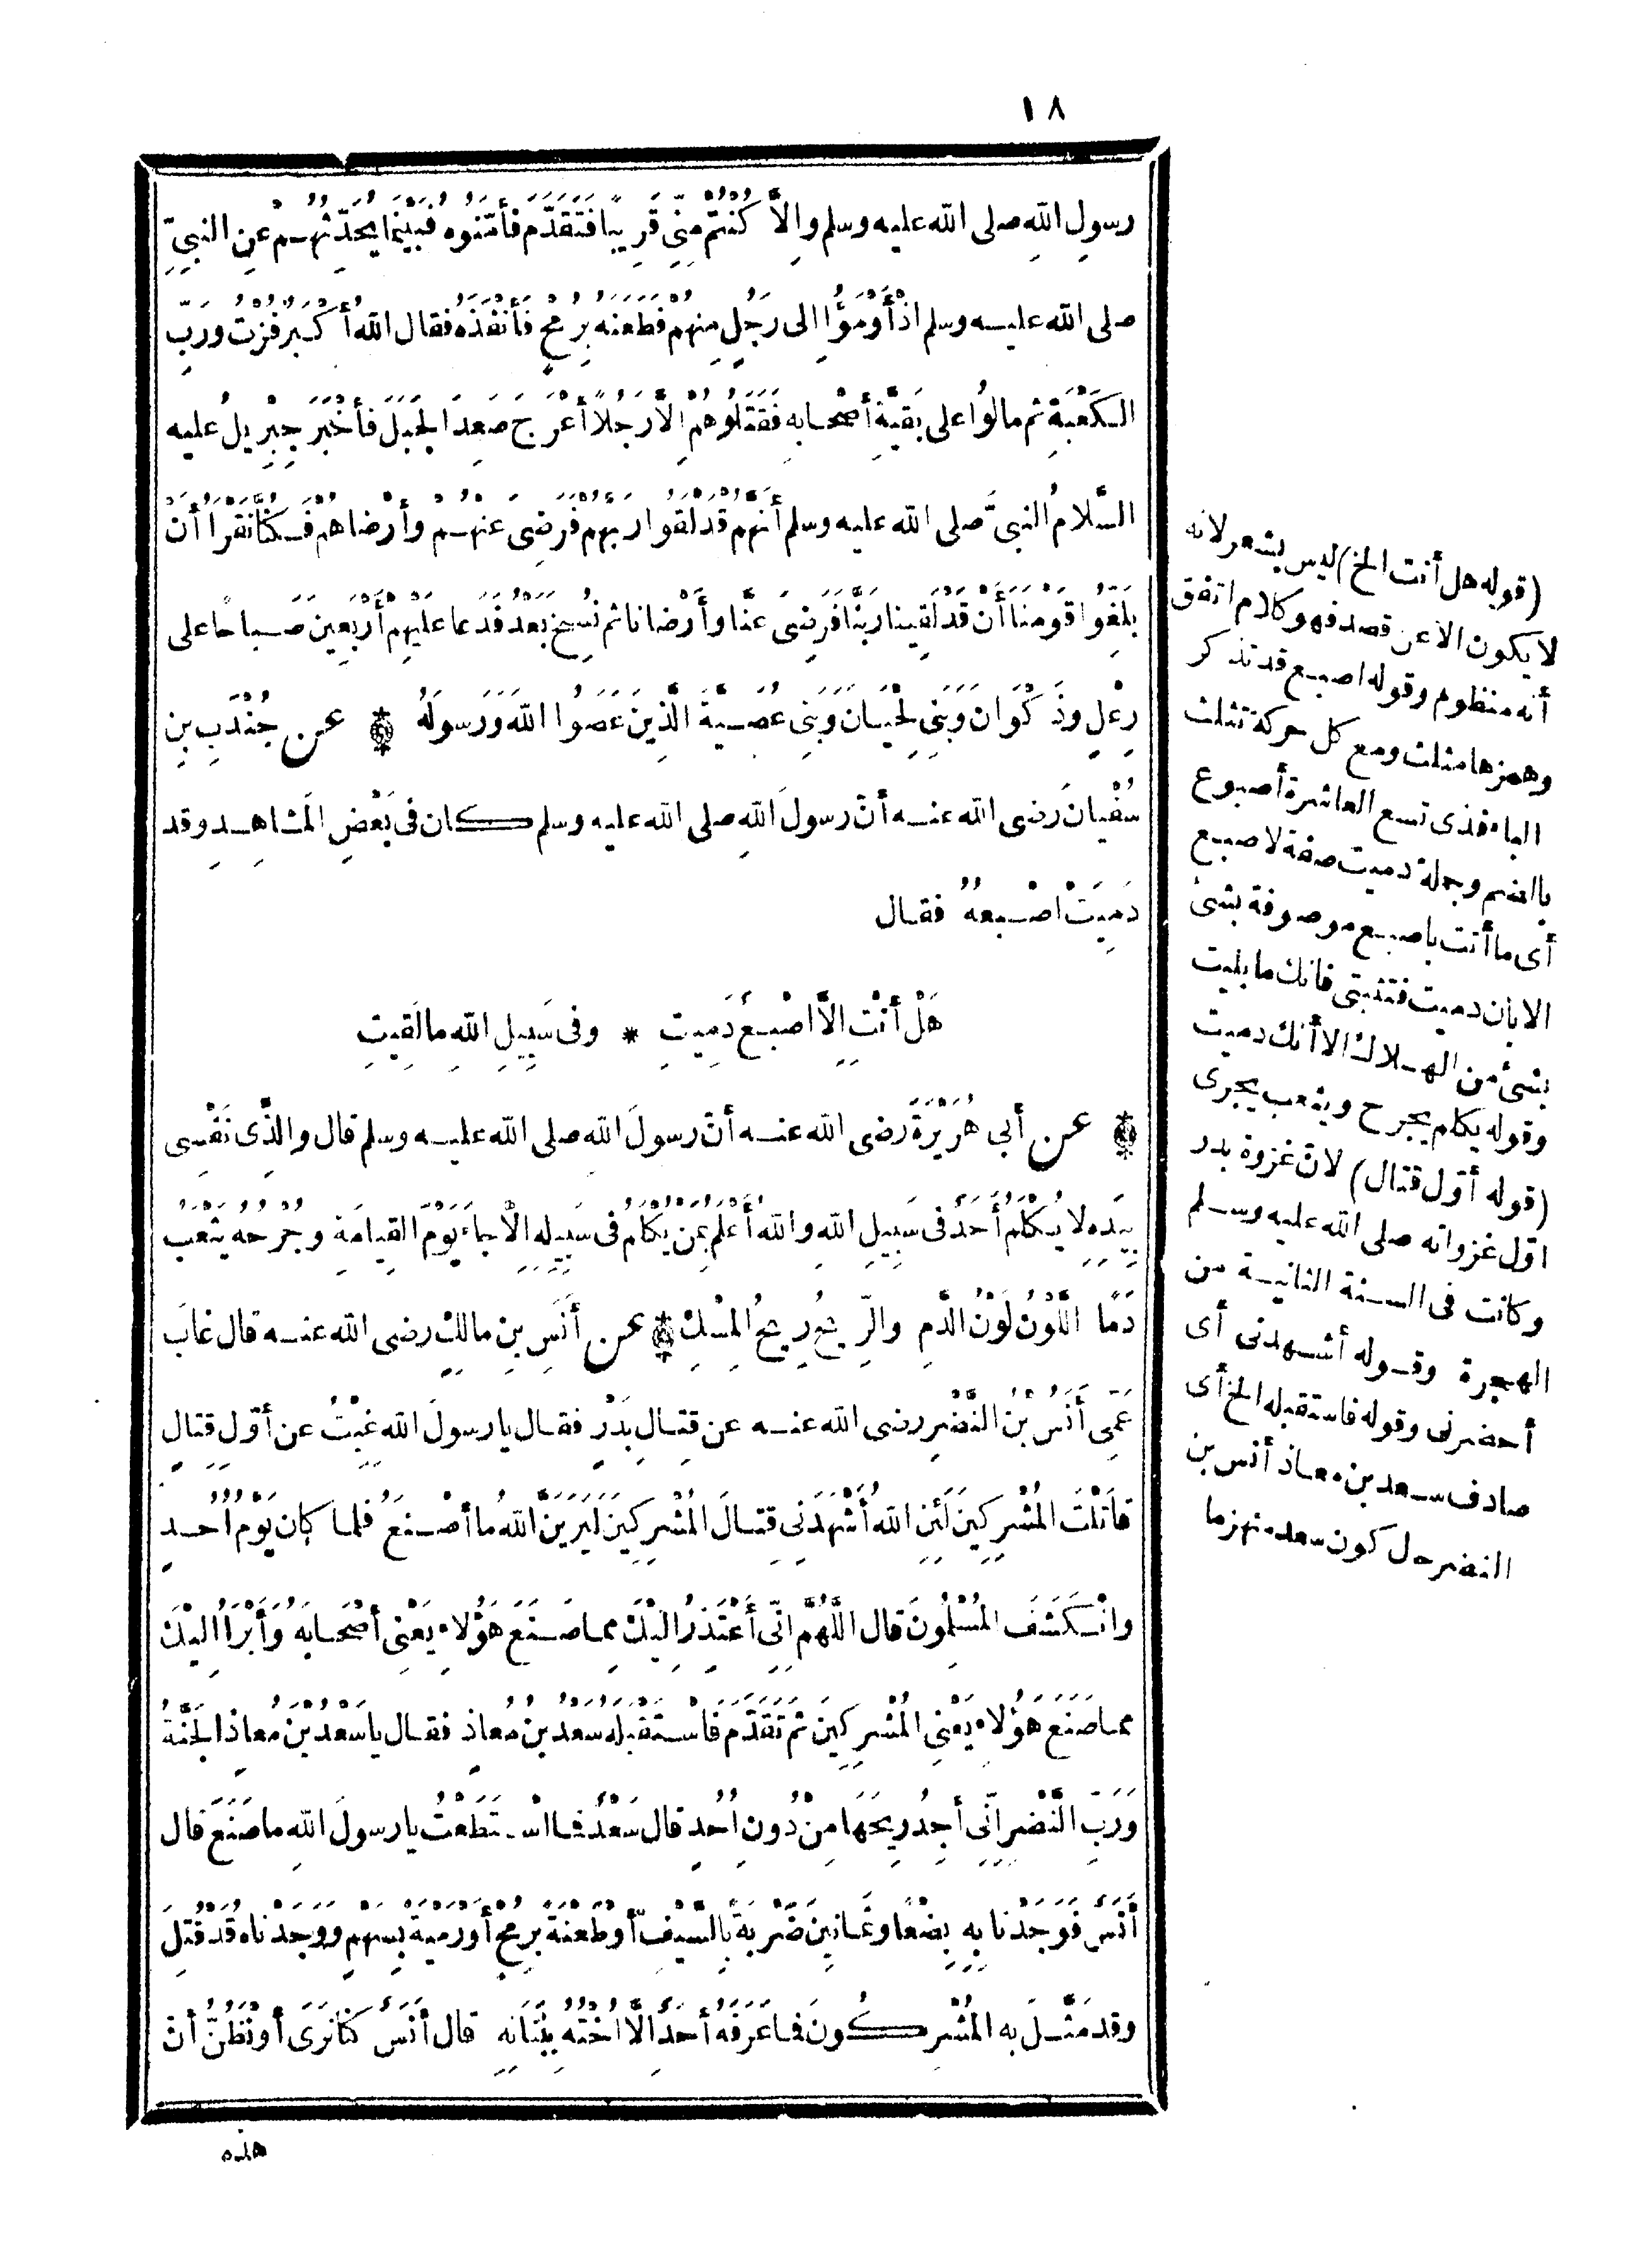 ١٨
رسولِ اللهِ صلى الله عليه وسلم وإلَّا كُنْتُمْ مِنِّي قَرِيبًا فَتَقَدَّمَ فأمَّنُوه فَبَيْنَما يُحَدِّثُهُمْ عنِ النبيِّ
صلى الله عليه وسلم اذْ أَوْمَؤُا إلى رَجُلٍ مِنهُم فَطَعنه بِرُمْحٍ فأنْفَذَه فقال اللهُ أَكْبَرُ فُزْتُ ورَبِّ
الكَعْبَةِ ثم مالُوا على بَقيَّةِ أصْحابه فَقَتَلُوهُمْ إلَّا رَجُلًا أعْرَجَ صَعِدَ الجَبَلَ فأخْبَرَ جِبْرِيلُ عليه
السَّلامُ النبيَّ صلى الله عليه وسلم أنَّهم قد لَقُوا ربَّهُم فَرَضِىَ عنهُمْ وأَرْضاهُمْ فَكُنَّا نَقْرَأُ أنْ
بَلِّغُوا قَوْمَنا أَنْ قَدْ لَقِينا رَبَّنا فَرَضِىَ عَنَّا وأَرْضانا ثم نُسِخَ بَعْدُ فَدَعا عليهِمْ أَرْبَعِينَ صَباحًا على
رِعْلٍ وذَكْوَانَ وَبَنِى لِحْيَانَ وَبَنِى عُصَيَّةَ الَّذِينَ عَصَوُا اللهَ وَرَسولَهُ ۞ عن جُنْدَبِ بنِ
سُفْيانَ رَضى الله عنه أنّ رسولَ اللهِ صلى الله عليه وسلم كان فى بَعْضِ المَشاهِدِ وقد
دَمِيَتْ اصْبعهُ فقال
هَلْ أَنْتِ إلَّا اصْبَعٌ دَمِيتِ * وفى سَبِيلِ اللهِ ما لَقِيتِ
۞ عن أبى هُرَيْرَةَ رضى الله عنه أنّ رسولَ اللهِ صلى الله عليه وسلم قال والَّذِى نَفْسِى
بِيَدِه لا يُكْلَمُ أَحَدٌ فى سَبِيلِ اللهِ واللهُ أَعْلَمُ بمَن يُكْلَمُ فى سَبِيلِه إلَّا جاءَ يَوْمَ القِيامَةِ وجُرْحُه يَثْعَبُ
دَمًا اللَّوْنُ لَوْنُ الدَّمِ والرِّيحُ رِيحُ المِسْكِ ۞ عن أَنَسِ بنِ مالكٍ رضى الله عنه قال غابَ
عَمِّى أَنَسُ بْنُ النَّضْرِ رضى الله عنه عن قتالِ بَدْرٍ فقال يا رسولَ الله غِبْتُ عن أوّلِ قِتالٍ
قاتَلْتَ المُشْرِكينَ لَئِنِ اللهُ أَشْهَدَنِى قتالَ المُشْرِكِينَ لَيَرَيَنَّ اللهُ ما أصْنَعُ فلما كان يَوْمُ أُحُدٍ
وانْكَشَفَ المُسْلِمُونَ قال اللَّهُمَّ إنِّى أَعْتَذِرُ إلَيْكَ مما صَنَعَ هَؤُلاءِ يَعْنِى أصْحَابَه وَأَبْرَأُ إلَيْكَ
مما صَنَعَ هَؤُلاءِ يَعْنِى المُشْرِكِينَ ثم تَقَدَّمَ فَاسْتَقْبَلَه سَعْدُ بنُ مُعاذٍ فقال يا سَعْدُ بْنَ مُعاذٍ الجَنَّةُ
وَرَبِّ النَّضْرِ إنِّى أَجِدُ رِيحَهَا مِنْ دُونِ أُحُدٍ قال سَعْدٌ فما اسْتَطَعْتُ يا رسولَ اللهِ ما صَنَعَ قال
أَنَسٌ فَوَجَدْنا بِهِ بِضْعًا وثمانِينَ ضَرْبَةً بِالسَّيْفِ أو طَعْنَةً بِرُمْحٍ أو رَمْيَةً بِسَهْمٍ ووَجَدْناه قَدْ قُتِلَ
وقد مَثَّلَ به المُشْرِكُونَ فما عَرَفَهُ أَحَدٌ إلَّا أُخْتُهُ بِبَنَانِهِ قال أَنَسٌ كُنّا نَرَى أو نَظُنُّ أنّ
هذه
(قوله هل أنت الخ) ليس بشعر لانه
لا يكون الا عن قصد فهو كلام اتفق
أنه منظوم وقوله اصبع قد تذكر
وهمزها مثلث ومع كل حركة تثلث
الباء فذى تسع العاشرة أصبوع
بالضم وجملة دميت صفة لاصبع
أى ما أنت يا اصبع موصوفة بشئ
الا بأن دميت فتثبتى فانك ما بليت
بشئ من الهلاك الا أنك دميت
وقوله يكلم يجرح ويثعب يجرى
(قوله أوّل قتال) لانّ غزوة بدر
اوّل غزواته صلى الله عليه وسلم
وكانت فى السنة الثانية من
الهجرة وقوله أشهدنى أى
أحضرنى وقوله فاستقبله الخ أى
صادف سعد بن معاذ أنس بن
النضر حال كون سعد منهزما